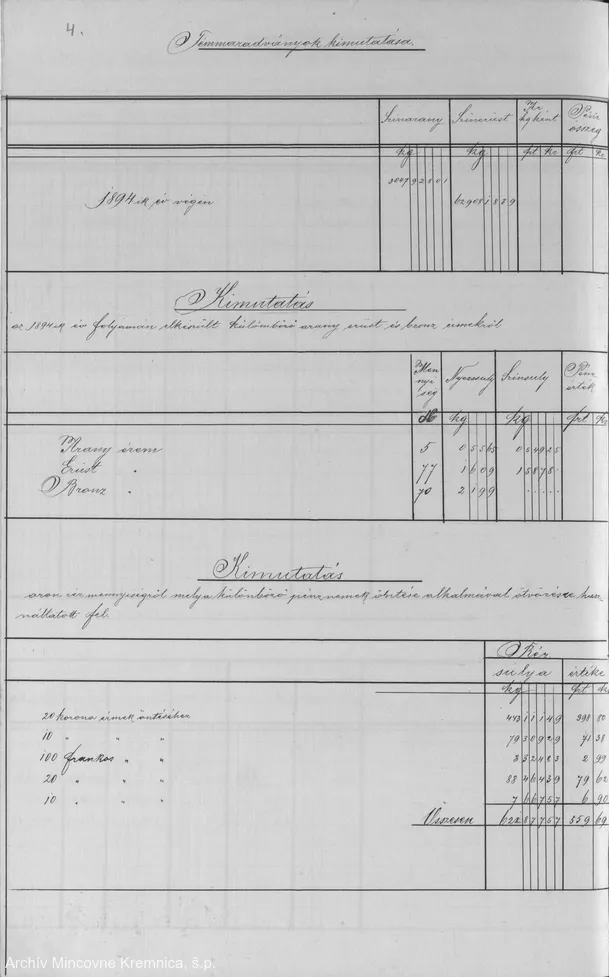 4.
Fémmaradványok kimutatása.
Szinarany Szinezüst Ár kgként Pénz összeg
kg kg frt kr frt kr
3047 9 2 8 0 1
1894 ik év végén 62908 1 8 3 9
Kimutatás
az 1894 ik év folyamán elkészült külömböző arany ezüst és bronz érmekről
Mennyiség Nyerssuly Szinsuly Pénz érték
kg kg frt kr
Arany érem 5 0 5 5 65 0 5 4 9 2 5
Ezüst " 77 1 6 0 9 1 5 8 7 5
Bronz " 70 2 1 9 9
Kimutatás
azon réz mennyiségről melya külömböző pénznemek öntése alkalmával ötvözésre hasz-
náltatott fel.
Réz
sulya értéke
kg frt kr
20 korona érmek öntéséhez 443 1 1 1 4 9 398 80
10 " " " 79 3 0 9 2 9 71 38
100 frankos " " 3 3 2 4 8 3 2 99
20 " " " 88 4 6 4 3 9 79 62
10 " " " 7 6 6 7 5 7 6 90
Összesen 622 8 7 7 5 7 559 69
Archív Mincovne Kremnica, š.p.